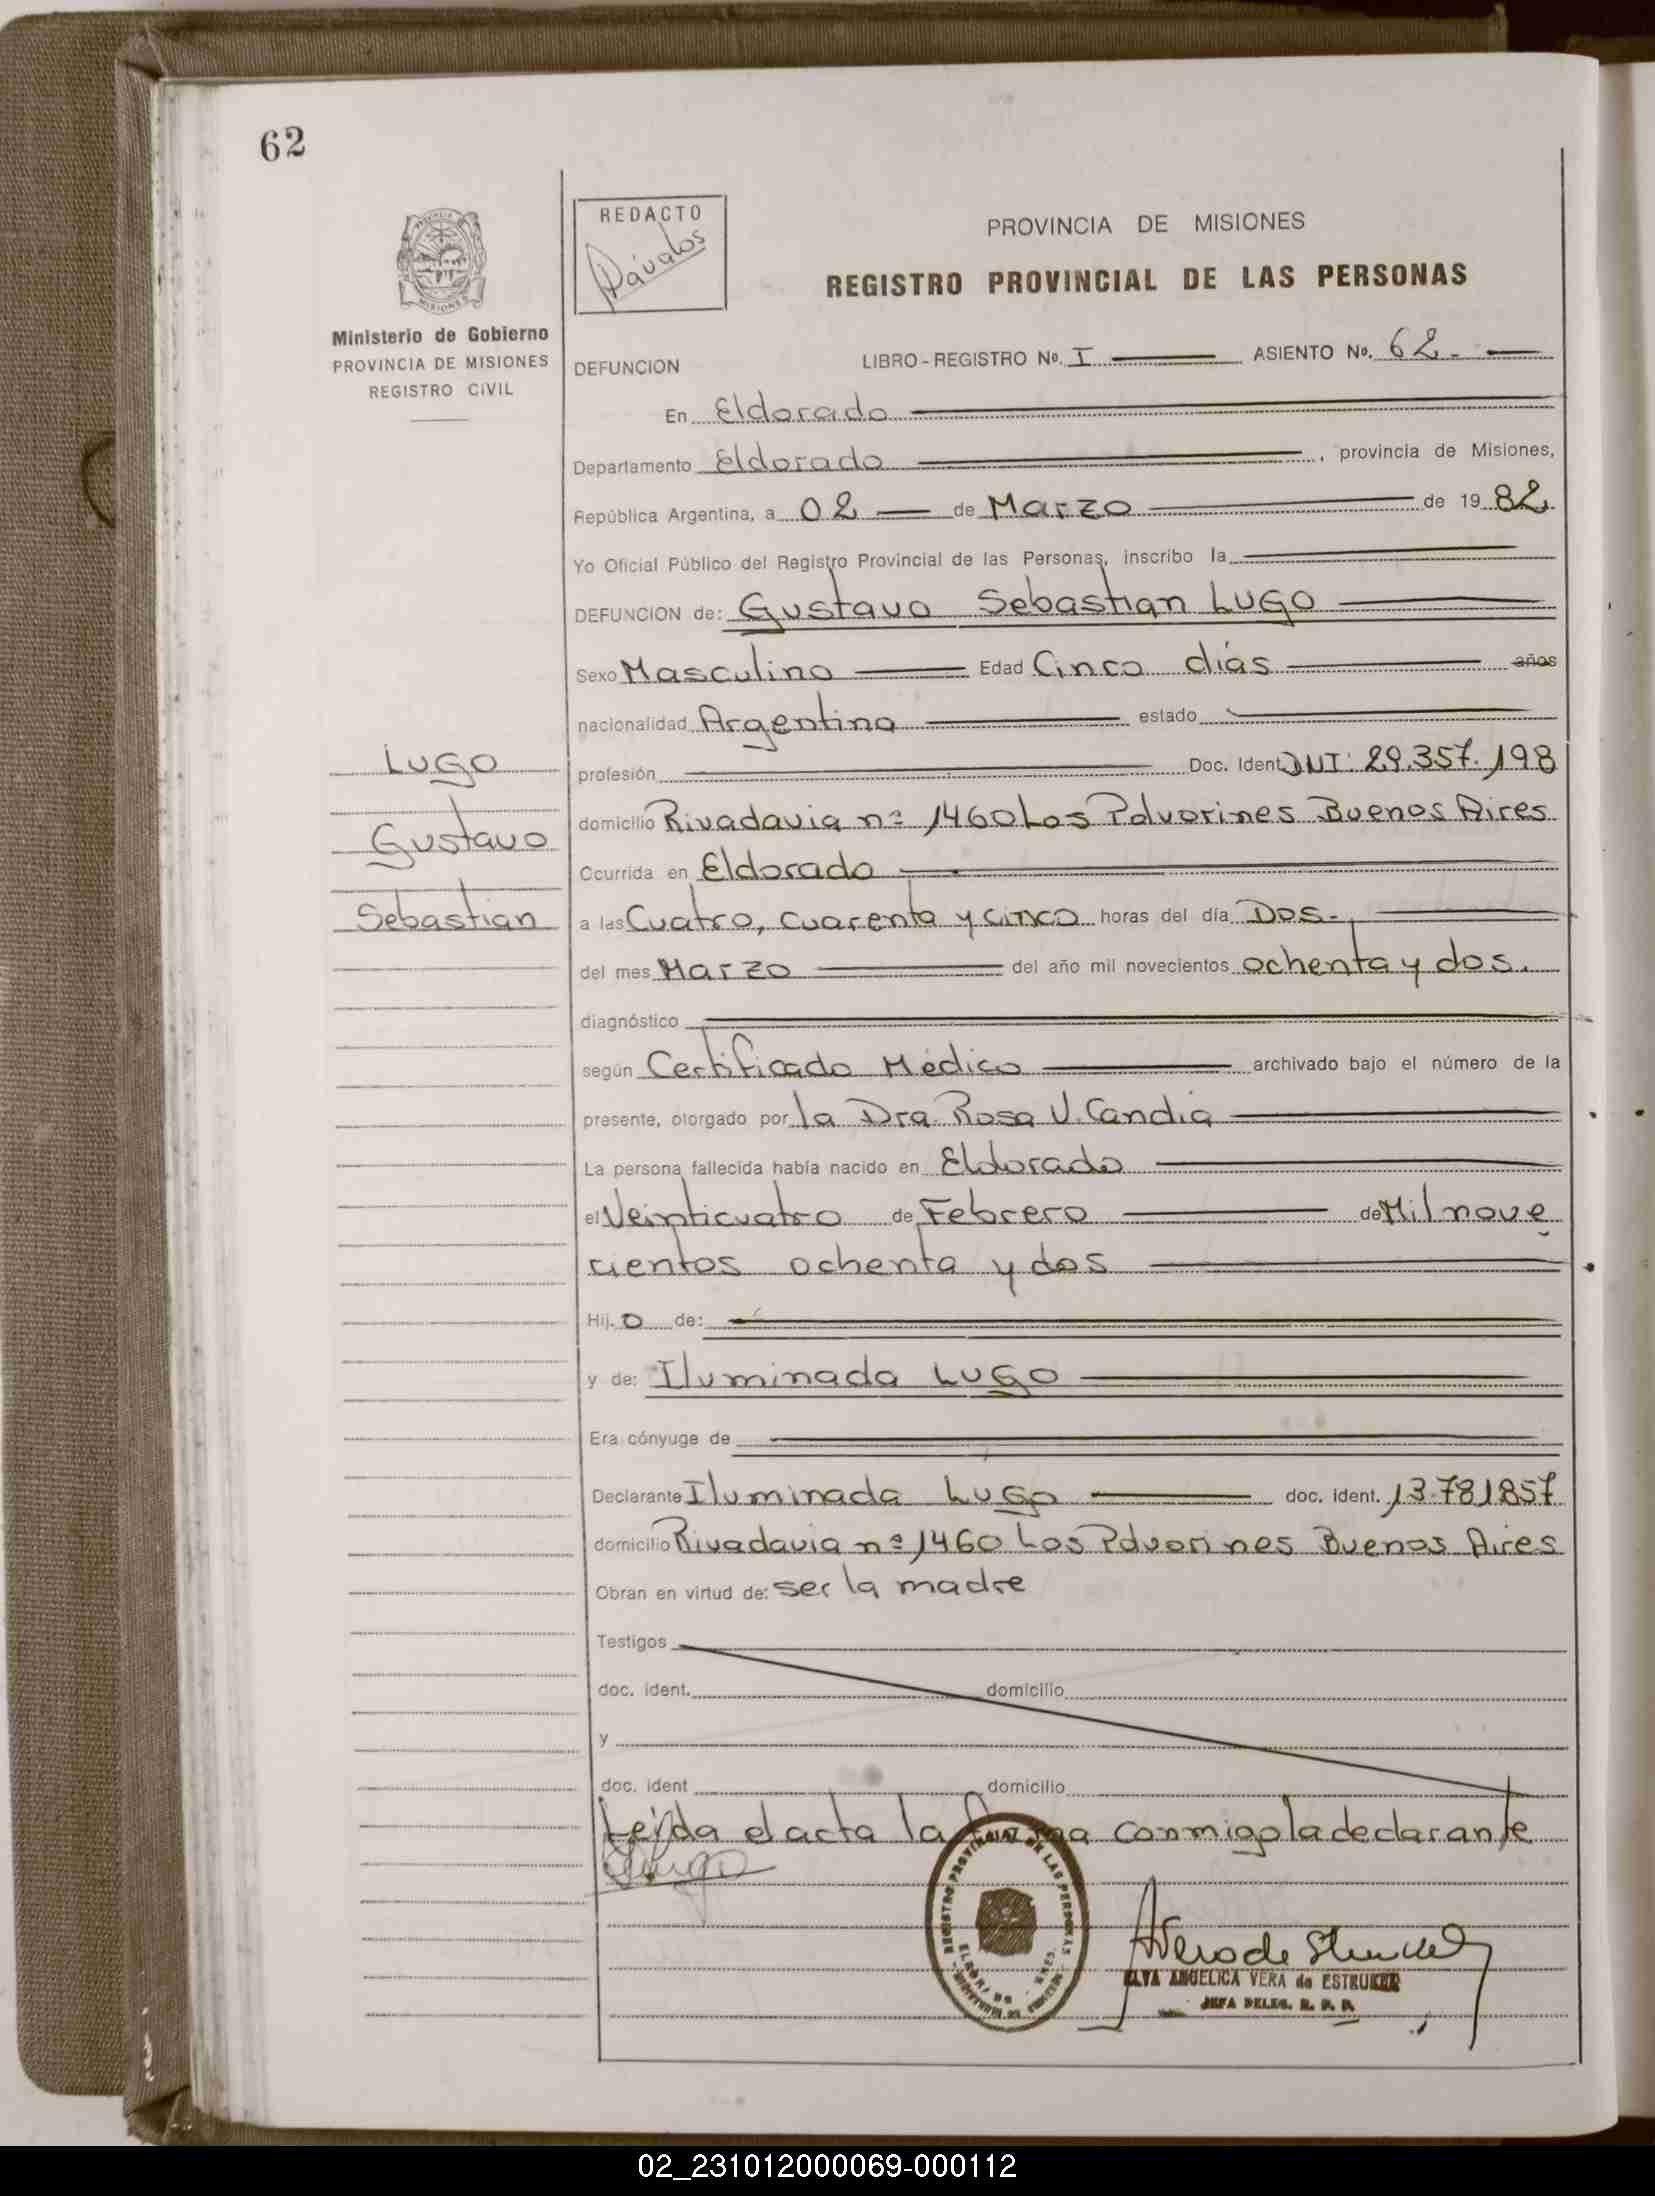 62
REDACTO
Dávalos
PROVINCIA DE MISIONES
REGISTRO PROVINCIAL DE LAS PERSONAS
Ministerio de Gobierno
PROVINCIA DE MISIONES
REGISTRO CIVIL
DEFUNCION LIBRO-REGISTRO No. I ASIENTO No. 62.
En Eldorado
Departamento Eldorado , provincia de Misiones,
República Argentina, a 02 de Marzo de 1982
Yo Oficial Público del Registro Provincial de las Personas, inscribo la
DEFUNCION de: Gustavo Sebastian LUGO
Sexo Masculino Edad Cinco días años
nacionalidad Argentina estado
LUGO
Gustavo
Sebastian
profesión Doc. Ident DNI: 29.357.198
domicilio Rivadavia nº 1460 Los Polvorines Buenos Aires
Ocurrida en Eldorado
a las Cuatro, cuarenta y cinco horas del día Dos.
del mes Marzo del año mil novecientos ochenta y dos.
diagnóstico
según Certificado Médico archivado bajo el número de la
presente, otorgado por la Dra. Rosa V. Candia
La persona fallecida había nacido en Eldorado
el Veinticuatro de Febrero de Mil nove
cientos ochenta y dos
Hij. o de:
y de: Iluminada LUGO
Era cónyuge de
Declarante Iluminada LUGO doc. ident. 13.781857
domicilio Rivadavia nº 1460 Los Polvorines Buenos Aires
Obran en virtud de: ser la madre
Testigos
doc. ident. domicilio
y
doc. ident domicilio
Leída el acta la firma conmigo la declarante
REGISTRO PROVINCIAL DE LAS PERSONAS
ELVA ANGELICA VERA de ESTRUKER
JEFA DELEG. R. P. P.
02_231012000069-000112